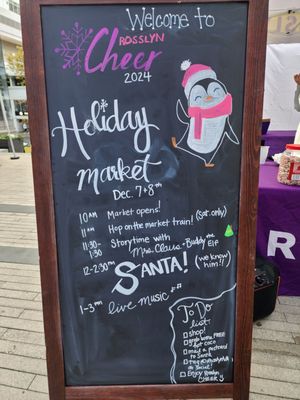 Welcome to
ROSSLYN
Cheer
2024
Holiday
market
Dec. 7+8th
10AM Market opens!
11AM Hop on the market train! (Sat. only)
11:30- Storytime with
1:30 Mrs. Claus + Buddy the Elf
12-2:30PM SANTA! (we know him!!)
1-3PM live music
To Do
list
shop!
grab some FREE
hot coco
mail a postcard
to Santa
on Social!
Enjoy Rosslyn
CHEER!
R